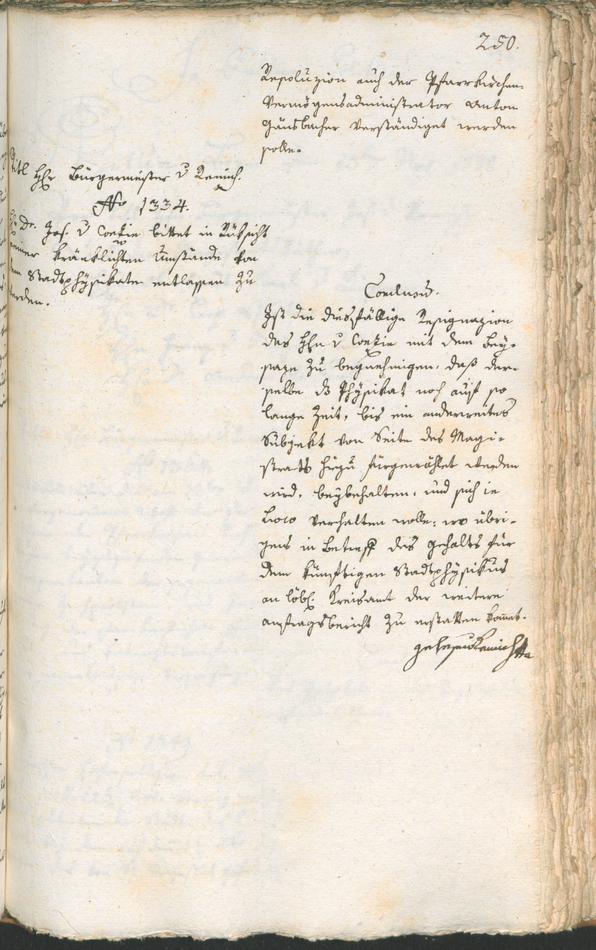 250.
Resoluzion auch der Pfarrkirchen-
Vermögensadministrator Anton
Gänsbacher verständiget werden
solle.
Titl Hhr Bürgermeister v
No 1334.
Dr. Jos. v bittet in Rüksicht
seiner kränklichten Umstände von
dem Stadtphysikate entlassen zu
werden.
Conclusum.
Ist die diesfällige Resignazion
des Hhn v mit dem Bey-
saze zu begnehmigen, daß der-
selbe das Physikat noch auf so
lange Zeit, bis ein anderweites
Subjekt von Seite des Magi-
strats hiezu fürgewählet werden
wird, beybehalten, und sich in
Loco verhalten wolle, wo übri-
gens in Betreff des Gehalts für
dem künftigen Stadtphysikus
an löbl. Kreisamt der weitere
Antragsbericht zu erstatten kommt.